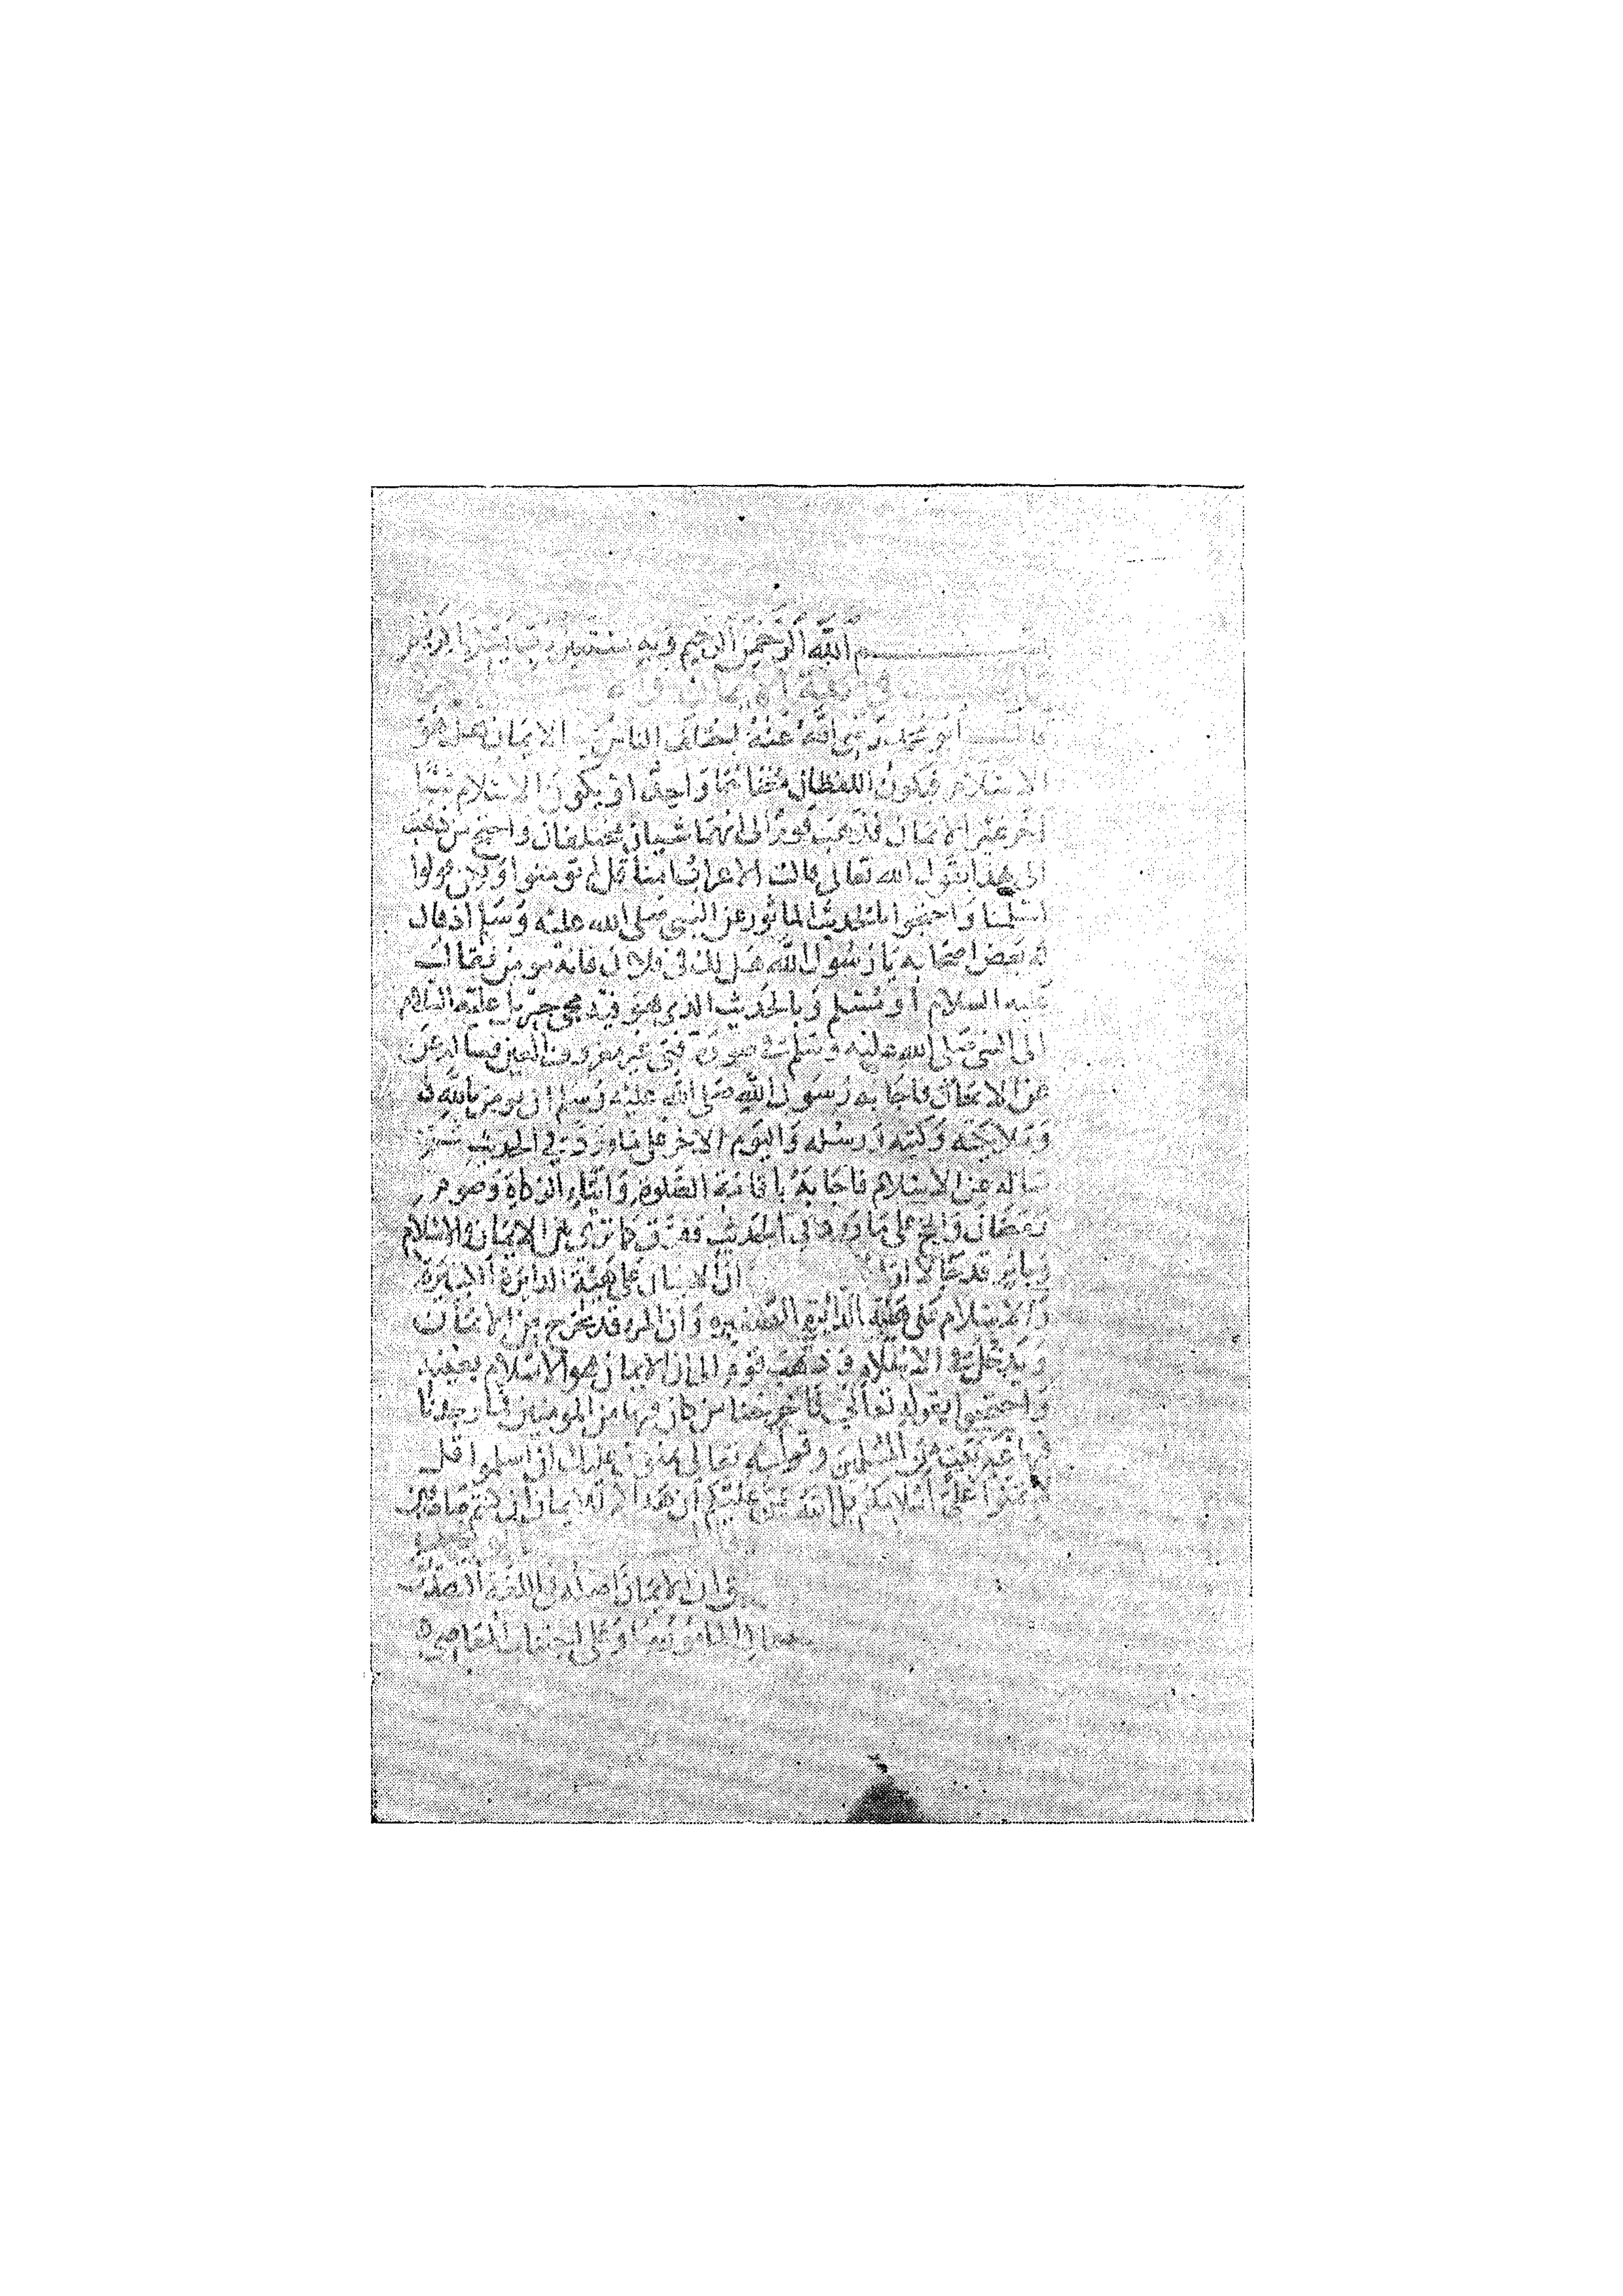 بسم الله الرحمن الرحيم وبه نستعين رب يسر يا كريم
في
قال أبو محمد رضي الله عنه اختلف الناس في الايمان هل هو
الاسلام فيكون اللفظان معناهما واحدا او يكون الاسلام شيئا
آخر غير الايمان فذهب قوم الى انهما شيان مختلفان واحتج من ذهب
الى هذا بقول الله تعالى قالت الاعراب امنا قل لم تومنوا ولكن قولوا
اسلمنا واحتجوا بالحديث الماثور عن النبي صلى الله عليه وسلم اذ قال
له بعض اصحابه يا رسول الله هل لك في فلان فانه مومن فقال
عليه السلام أو مسلم وبالحديث الذي هو فيه مجي جبريل عليه السلام
الى النبي صلى الله عليه وسلم في صورة فتى غير معروف العين فساله عن
عن الايمان فاجابه رسول الله صلى الله عليه وسلم ان يومن بالله
وملايكته وكتبه ورسله واليوم الاخر على ما ورد في الحديث ثم
ساله عن الاسلام فاجابه باقامة الصلوة وايتاء الزكاة وصوم
رمضان والحج على ما ورد في الحديث ففرق كما ترى بين الايمان والاسلام
ان الايمان على هيئة الدايرة الكبيرة
والاسلام على هيئة الدايرة الصغيره وان المرء قد يخرج من الايمان
ويدخل في الاسلام وذهب قوم الى ان الايمان هو الاسلام بعينه
واحتجوا بقوله تعالى فاخرجنا من كان فيها من المومنين فما وجدنا
فيها غير بيت من المسلمين وقوله تعالى يمنون عليك ان اسلموا قل
لا تمنوا على اسلامكم بل الله يمن عليكم أن هداكم للايمان ان كنتم صادقين
في ان الايمان اصله في اللغة التصديق
وعلى اجتناب المعاصي